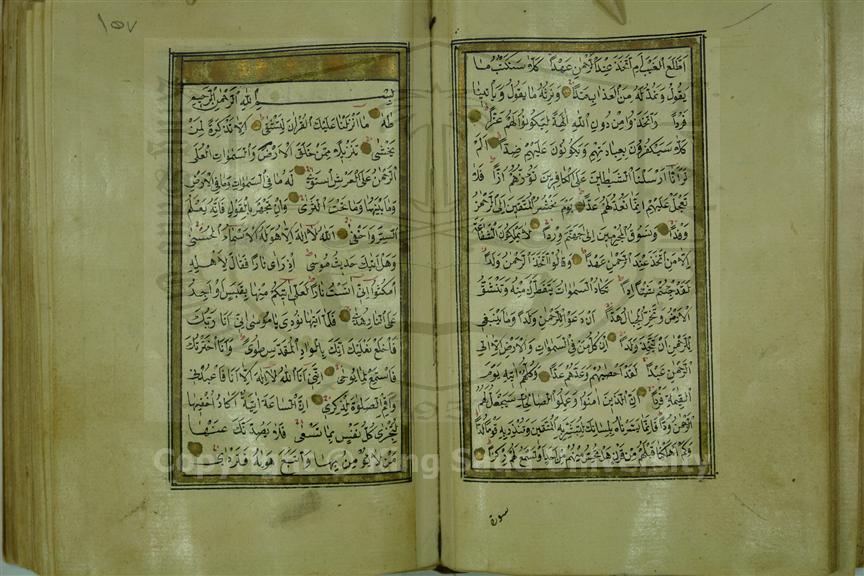 اطلع الغيب ام اتخذ عند الرحمن عهدا كلا سنكتب ما
يقول ونمد له من العذاب مدا ونرثه ما يقول وياتينا
فردا واتخذوا من دون الله الهة ليكونوا لهم عزا
كلا سيكفرون بعبادتهم ويكونون عليهم ضدا الم
تر انا ارسلنا الشياطين على الكافرين تؤزهم ازا فلا
تعجل عليهم انما نعد لهم عدا يوم نحشر المتقين الى الرحمن
وفدا ونسوق المجرمين الى جهنم وردا لا يملكون الشفاعة
الا من اتخذ عند الرحمن عهدا وقالوا اتخذ الرحمن ولدا
لقد جئتم شيئا ادا تكاد السموات يتفطرن منه وتنشق
الارض وتخر الجبال هدا ان دعوا للرحمن ولدا وما ينبغي
للرحمن ان يتخذ ولدا ان كل من في السموات والارض الا اتى
الرحمن عبدا لقد احصيهم وعدهم عدا وكلهم اتيه يوم
القيمة فردا ان الذين امنوا وعملوا الصالحات سيجعل لهم
الرحمن ودا فانما يسرناه بلسانك لتبشر به المتقين وتنذر به قوما لدا
وكم اهلكنا قبلهم من قرن هل تحس منهم من احد او تسمع لهم ركزا
سورة
١٥٧
بسم الله الرحمن الرحيم
طه ما انزلنا عليك القران لتشقى الا تذكرة لمن
يخشى تنزيلا ممن خلق الارض والسموات العلى
الرحمن على العرش استوى له ما في السموات وما في الارض
وما بينهما وما تحت الثرى وان تجهر بالقول فانه يعلم
السر واخفى الله لا اله الا هو له الاسماء الحسنى
وهل اتيك حديث موسى اذ راى نارا فقال لاهله
امكثوا انى انست نارا لعلى اتيكم منها بقبس او اجد
على النار هدى فلما اتيها نودى يا موسى انى انا ربك
فاخلع نعليك انك بالواد المقدس طوى وانا اخترتك
فاستمع لما يوحى اننى انا الله لا اله الا انا فاعبدنى
واقم الصلوة لذكرى ان الساعة اتية اكاد اخفيها
لتجزى كل نفس بما تسعى فلا يصدنك عنها
من لا يؤمن بها واتبع هويه فتردى
Copyright © King Saud University